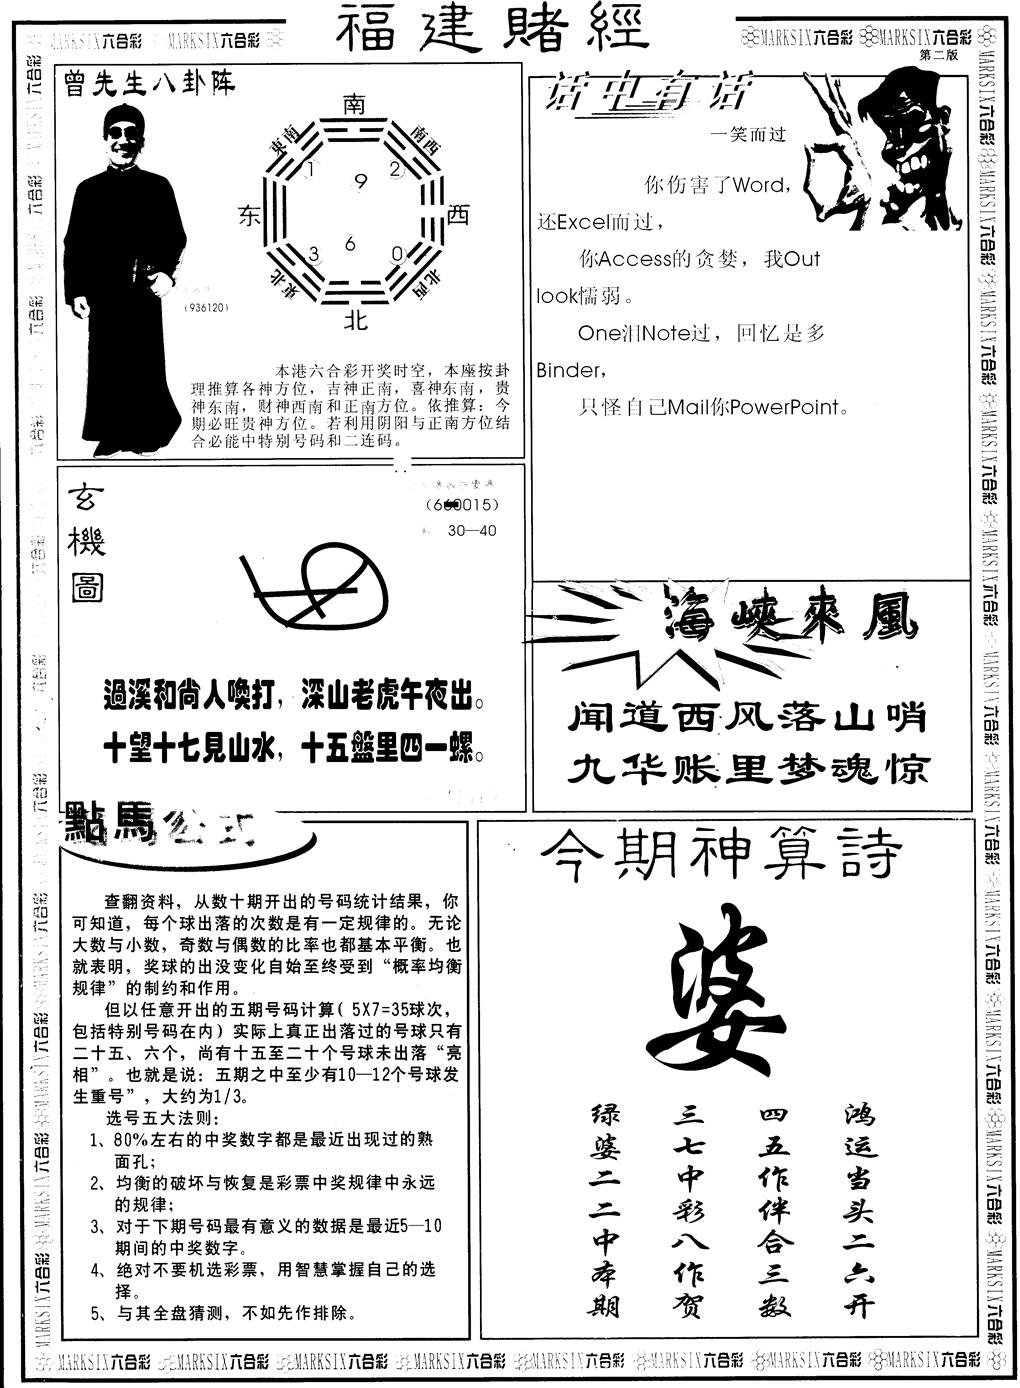 福建賭經
MARKSIX六合彩 MARKSIX六合彩
MARKSIX六合彩 MARKSIX六合彩
第二版
曾先生八卦阵
南
東南
南西
1
9
2
东
西
3
6
0
東北
北西
北
(936120)
本港六合彩开奖时空，本座按卦
理推算各神方位，吉神正南，喜神东南，贵
神东南，财神西南和正南方位。依推算：今
期必旺贵神方位。若利用阴阳与正南方位结
合必能中特别号码和二连码。
话中有话
一笑而过
你伤害了Word，
还Excel而过，
你Access的贪婪，我Out
look懦弱。
One泪Note过，回忆是多
Binder，
只怪自己Mail你PowerPoint。
玄機圖
30—40
過溪和尚人喚打，深山老虎午夜出。
十望十七見山水，十五盤里四一螺。
海峽來風
闻道西风落山哨
九华账里梦魂惊
點馬公式
查翻资料，从数十期开出的号码统计结果，你
可知道，每个球出落的次数是有一定规律的。无论
大数与小数，奇数与偶数的比率也都基本平衡。也
就表明，奖球的出没变化自始至终受到“概率均衡
规律”的制约和作用。
但以任意开出的五期号码计算( 5X7=35球次，
包括特别号码在内) 实际上真正出落过的号球只有
二十五、六个，尚有十五至二十个号球未出落“亮
相”。也就是说：五期之中至少有10—12个号球发
生重号”，大约为1/3。
选号五大法则：
1、80%左右的中奖数字都是最近出现过的熟
面孔；
2、均衡的破坏与恢复是彩票中奖规律中永远
的规律；
3、对于下期号码最有意义的数据是最近5—10
期间的中奖数字。
4、绝对不要机选彩票，用智慧掌握自己的选
择。
5、与其全盘猜测，不如先作排除。
今期神算詩
婆
鸿运当头二六开
四五作伴合三数
三七中彩八作贺
绿婆二二中本期
MARKSIX六合彩 MARKSIX六合彩 MARKSIX六合彩 MARKSIX六合彩 MARKSIX六合彩 MARKSIX六合彩 MARKSIX六合彩 MARKSIX六合彩